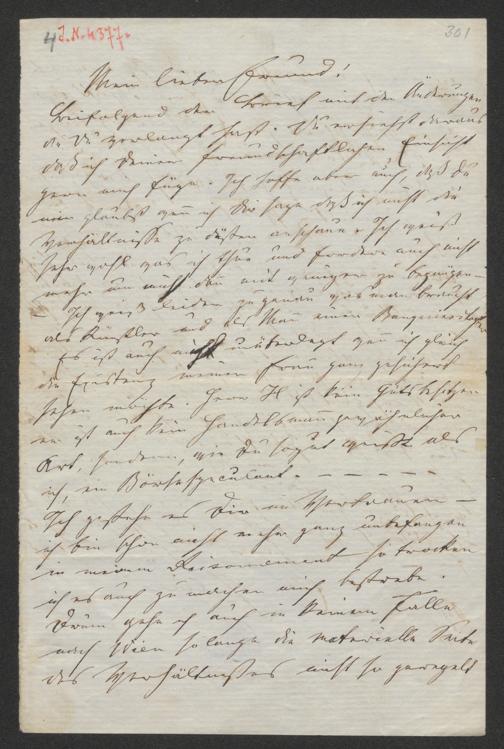 4 J.N. 4377.
301
Mein lieber Freund!
Beifolgend der Brief mit den Änderungen
die Du verlangt hast. Du ersiehst daraus
daß ich Deiner freundschaftlichen Einsicht
gern mich füge. Ich hoffe aber auch, daß Du
mir glaubst wenn ich Dir sage daß ich nicht die
Verhältnisse zu düster anschaue. Ich weiß
sehr wohl was ich thue und fordere auch nicht
mehr um mich dann mit weniger zu begnügen —
— Ich weiß leider zu genau was man braucht
als Künstler und als Mann einer
Es ist auch nicht unüberlegt wenn ich gleich
die Existenz meiner Frau ganz gesichert
sehen möchte Herr H ist kein Gutsbesitzer
er ist auch kein Handelsmann gewöhnlicher
Art, sondern, wie Du so gut weißt als
ich, ein Börsespeculant. — — — — —
Ich gestehe es Dir im Vertrauen —
ich bin schon nicht mehr ganz unbefangen
in meinem Raisonnement so trocken
ich es auch zu machen mich bestrebe.
Drum gehe ich auch in keinem Falle
nach Wien solange die materielle Seite
des Verhältnißes nicht so geregelt